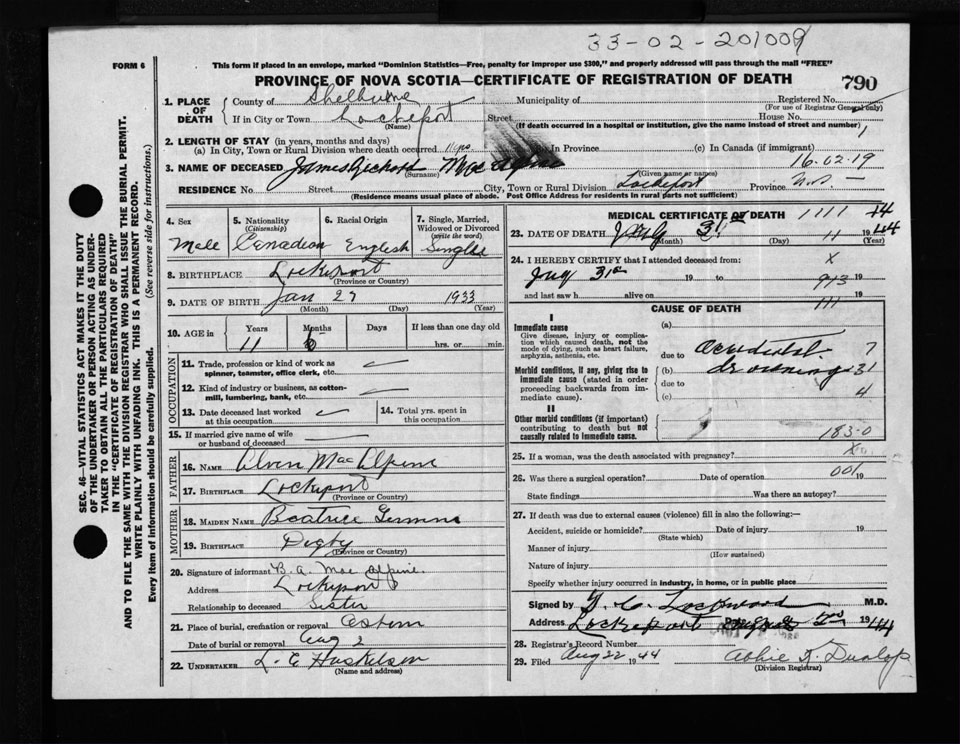 33-02-201009
FORM 6
This form if placed in an envelope, marked "Dominion Statistics—Free, penalty for improper use $300," and properly addressed will pass through the mail "FREE"
PROVINCE OF NOVA SCOTIA—CERTIFICATE OF REGISTRATION OF DEATH
790
SEC. 46—VITAL STATISTICS ACT MAKES IT THE DUTY
OF THE UNDERTAKER OR PERSON ACTING AS UNDER-
TAKER TO OBTAIN ALL THE PARTICULARS REQUIRED
IN THE "CERTIFICATE OF REGISTRATION OF DEATH"
AND TO FILE THE SAME WITH THE DIVISION REGISTRAR WHO SHALL ISSUE THE BURIAL PERMIT.
WRITE PLAINLY WITH UNFADING INK. THIS IS A PERMANENT RECORD.
Every item of information should be carefully supplied. (See reverse side for instructions.)
1. PLACE OF DEATH
County of Shelburne Municipality of Registered No.
(For use of Registrar General only)
If in City or Town Lockeport Street House No.
(Name) (If death occurred in a hospital or institution, give the name instead of street and number)
2. LENGTH OF STAY (in years, months and days)
(a) In City, Town or Rural Division where death occurred 11 yrs In Province (c) In Canada (if immigrant)
16-02-19
3. NAME OF DECEASED James Richard Mac Alpine
(Surname) (Given name or names)
RESIDENCE No. Street City, Town or Rural Division Lockeport Province N.S.
(Residence means usual place of abode. Post Office Address for residents in rural parts not sufficient)
4. Sex
Male
5. Nationality
(Citizenship)
Canadian
6. Racial Origin
English
7. Single, Married,
Widowed or Divorced
(write the word)
Single
8. BIRTHPLACE Lockeport
(Province or Country)
9. DATE OF BIRTH Jan 27 1933
(Month) (Day) (Year)
10. AGE in Years Months Days If less than one day old
11 6 hrs. or min.
OCCUPATION
11. Trade, profession or kind of work as
spinner, teamster, office clerk, etc.
12. Kind of industry or business, as cotton-
mill, lumbering, bank, etc.
13. Date deceased last worked
at this occupation
14. Total yrs. spent in
this occupation
15. If married give name of wife
or husband of deceased
FATHER
16. NAME Alvin MacAlpine
17. BIRTHPLACE Lockeport
(Province or Country)
MOTHER
18. MAIDEN NAME Beatrice
19. BIRTHPLACE Digby
(Province or Country)
20. Signature of informant B. A. Mac Alpine.
Address Lockeport
Relationship to deceased Sister
21. Place of burial, cremation or removal
Date of burial or removal Aug 2
22. UNDERTAKER L. E
(Name and address)
MEDICAL CERTIFICATE OF DEATH 1111 14
23. DATE OF DEATH July 31 11 1944
(Month) (Day) (Year)
24. I HEREBY CERTIFY that I attended deceased from: X
July 31st 19 to 943 19
and last saw h alive on 111 19
CAUSE OF DEATH
I
Immediate cause
Give disease, injury or complica-
tion which caused death, not the
mode of dying, such as heart failure,
asphyxia, asthenia, etc.
Morbid conditions, if any, giving rise to
immediate cause (stated in order
proceeding backwards from im-
mediate cause).
II
Other morbid conditions (if important)
contributing to death but not
causally related to immediate cause.
(a)
due to Accidental 7
(b) drowning 31
due to
(c) 4
183-0
25. If a woman, was the death associated with pregnancy? X
26. Was there a surgical operation? Date of operation 001 19
State findings Was there an autopsy?
27. If death was due to external causes (violence) fill in also the following:—
Accident, suicide or homicide? Date of injury 19
(State which)
Manner of injury
(How sustained)
Nature of injury
Specify whether injury occurred in industry, in home, or in public place
Signed by Lockwood M.D.
Address Lockeport Date 1944
28. Registrar's Record Number
29. Filed Aug 22 1944 Abbie Dunlop
(Division Registrar)